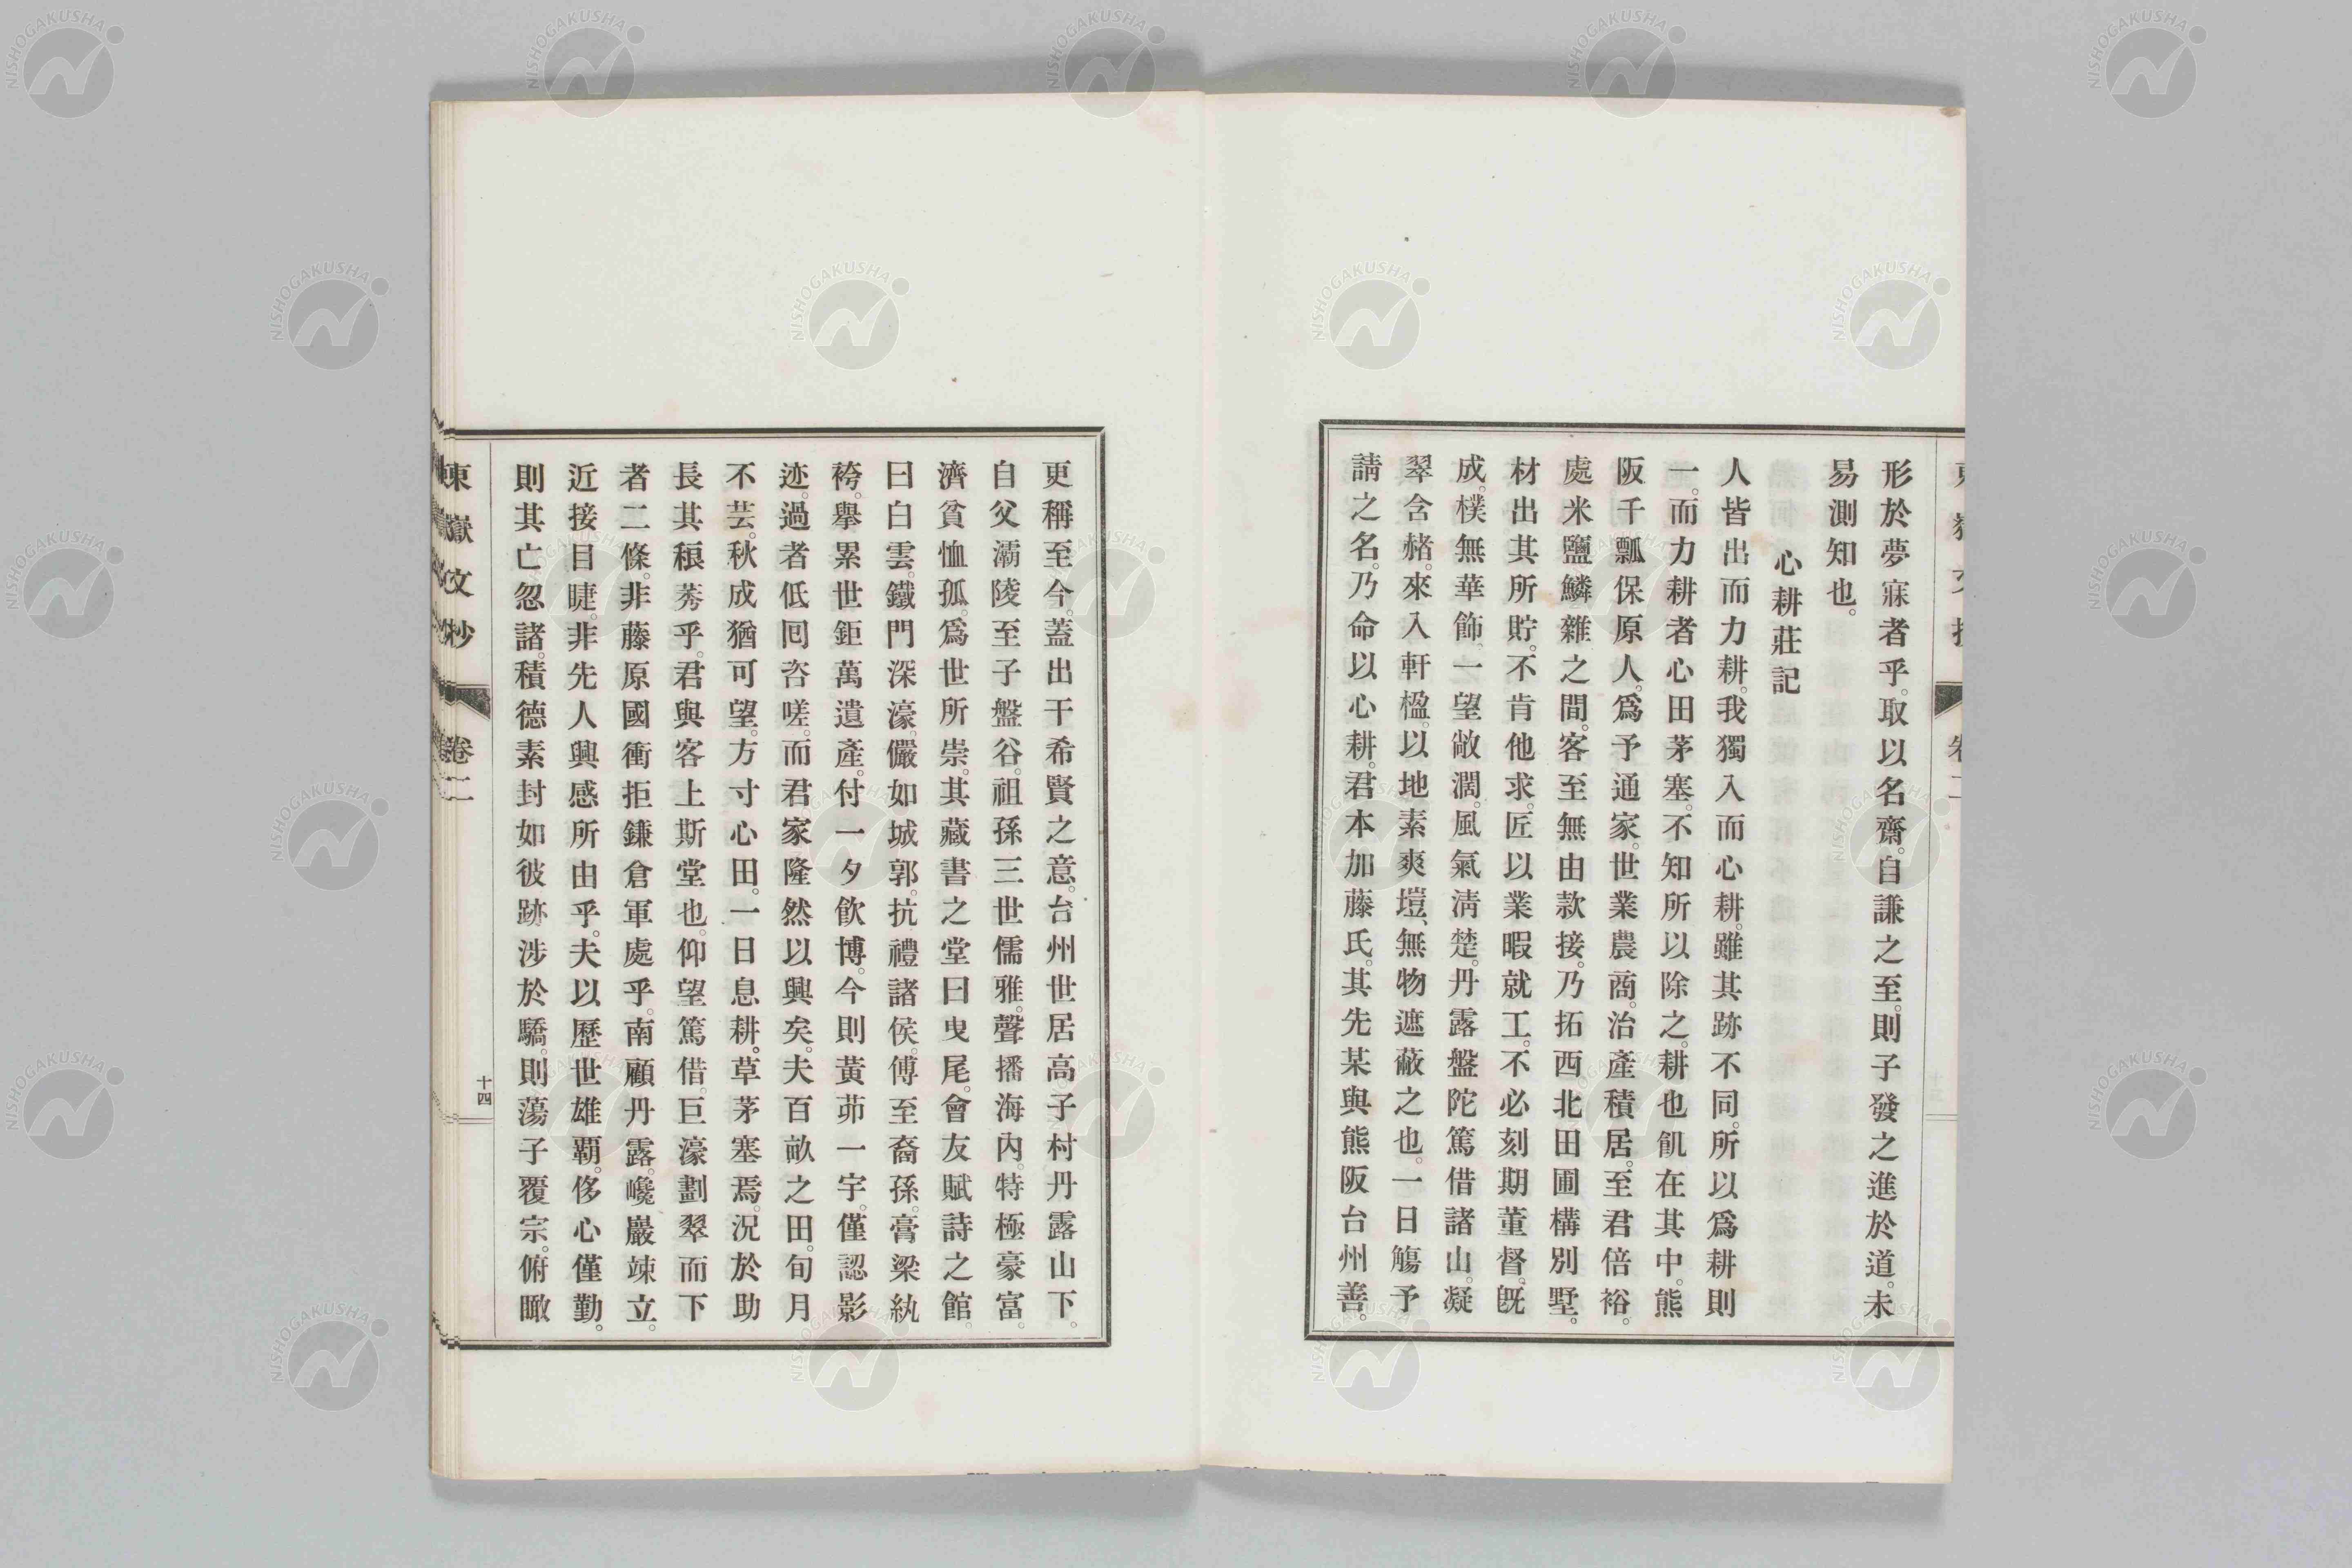 形於夢寐者乎。取以名齋。自謙之至。則子發之進於道。未
易測知也。
心耕莊記
人皆出而力耕。我獨入而心耕。雖其跡不同。所以爲耕則
一。而力耕者心田茅塞。不知所以除之。耕也飢在其中。熊
阪千瓢保原人。爲予通家。世業農商。治產積居。至君倍裕。
處米鹽鱗雜之間。客至無由款接。乃拓西北田圃構別墅。
材出其所貯。不肯他求。匠以業暇就工。不必刻期董督。既
成。樸無華飾。一望敞濶。風氣淸楚。丹露盤陀篤借諸山。凝
翠含赭。來入軒楹。以地素爽塏、無物遮蔽之也。一日觴予
請之名。乃命以心耕。君本加藤氏。其先某與熊阪台州善。
更稱至今。蓋出干希賢之意。台州世居高子村丹露山下。
自父灞陵至子盤谷。祖孫三世儒雅。聲播海內。特極豪富。
濟貧恤孤。爲世所崇。其藏書之堂曰曳尾。會友賦詩之館。
曰白雲。鐵門深濠。儼如城郭。抗禮諸侯。傅至裔孫。膏梁紈
袴。擧累世鉅萬遺產。付一夕飮博。今則黃茆一宇。僅認影
迹。過者低囘咨嗟。而君家隆然以興矣。夫百畝之田。旬月
不芸。秋成猶可望。方寸心田。一日息耕。草茅塞焉。況於助
長其稂莠乎。君與客上斯堂也。仰望篤借。巨濠劃翠而下
者二條。非藤原國衝拒鎌倉軍處乎。南顧丹露。巉巖竦立。
近接目睫。非先人興感所由乎。夫以歷世雄覇。侈心僅勤。
則其亡忽諸。積德素封如彼。跡涉於驕。則蕩子覆宗。俯瞰
東嶽文抄
卷二
十四
NISHOGAKUSHA